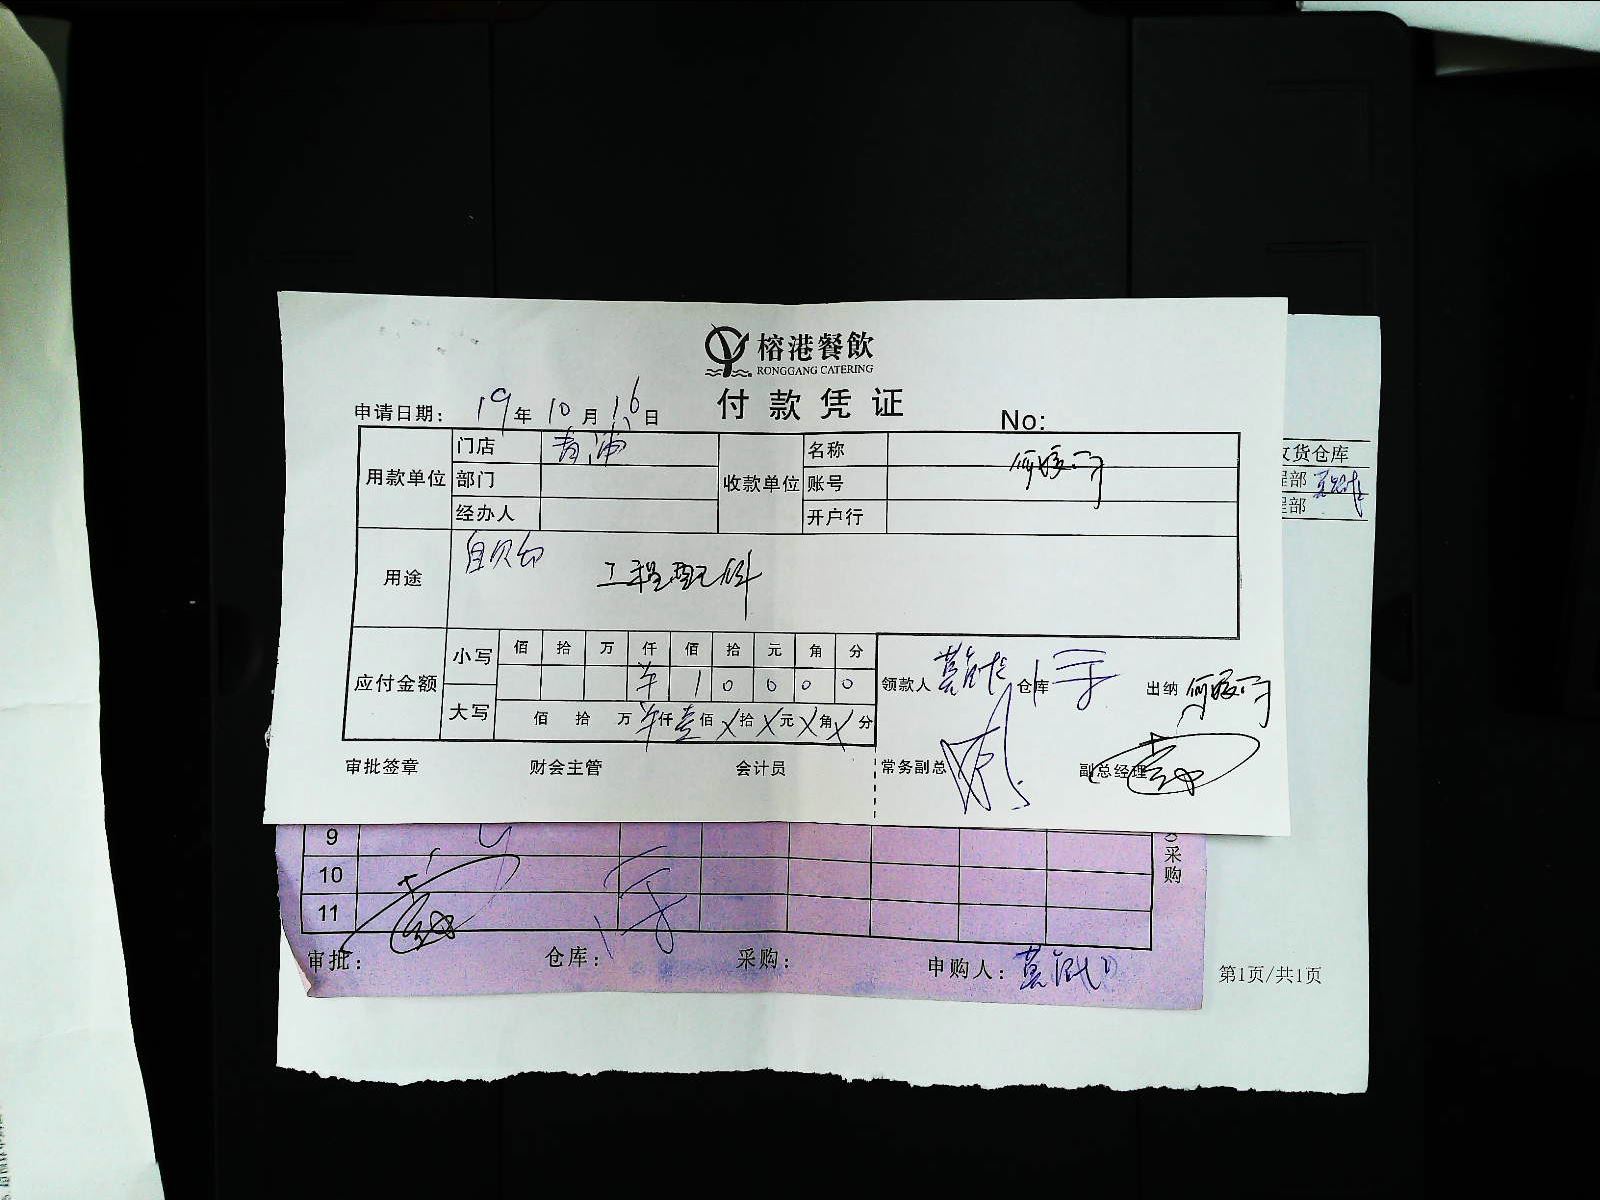 榕港餐飲
RONGGANG CATERING
付款凭证
申请日期: 19年 10月 16日 No:
用款单位 门店 青浦 收款单位 名称
部门 账号
经办人 开户行
用途 自贝台 工程配件
应付金额 小写 佰 拾 万 仟 佰 拾 元 角 分
¥ 1 0 0 0 0
大写 佰 拾 万 ¥仟 壹佰 X拾 X元 X角 X分
领款人 仓库 出纳
审批签章 财会主管 会计员 常务副总 副总经理
货仓库
程部
程部
9
10
11
采购
审批: 仓库: 采购: 申购人:
第1页/共1页